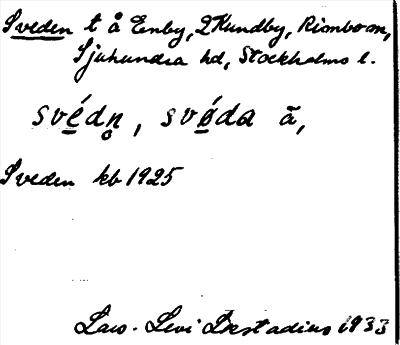 Sveden t å Enby, 2 Kundby, Rimbo sn,
Sjuhundra hd, Stockholms l.
svédn̥, svǿda ā,
Sveden kb 1925
Lars-Levi Læstadius 1933